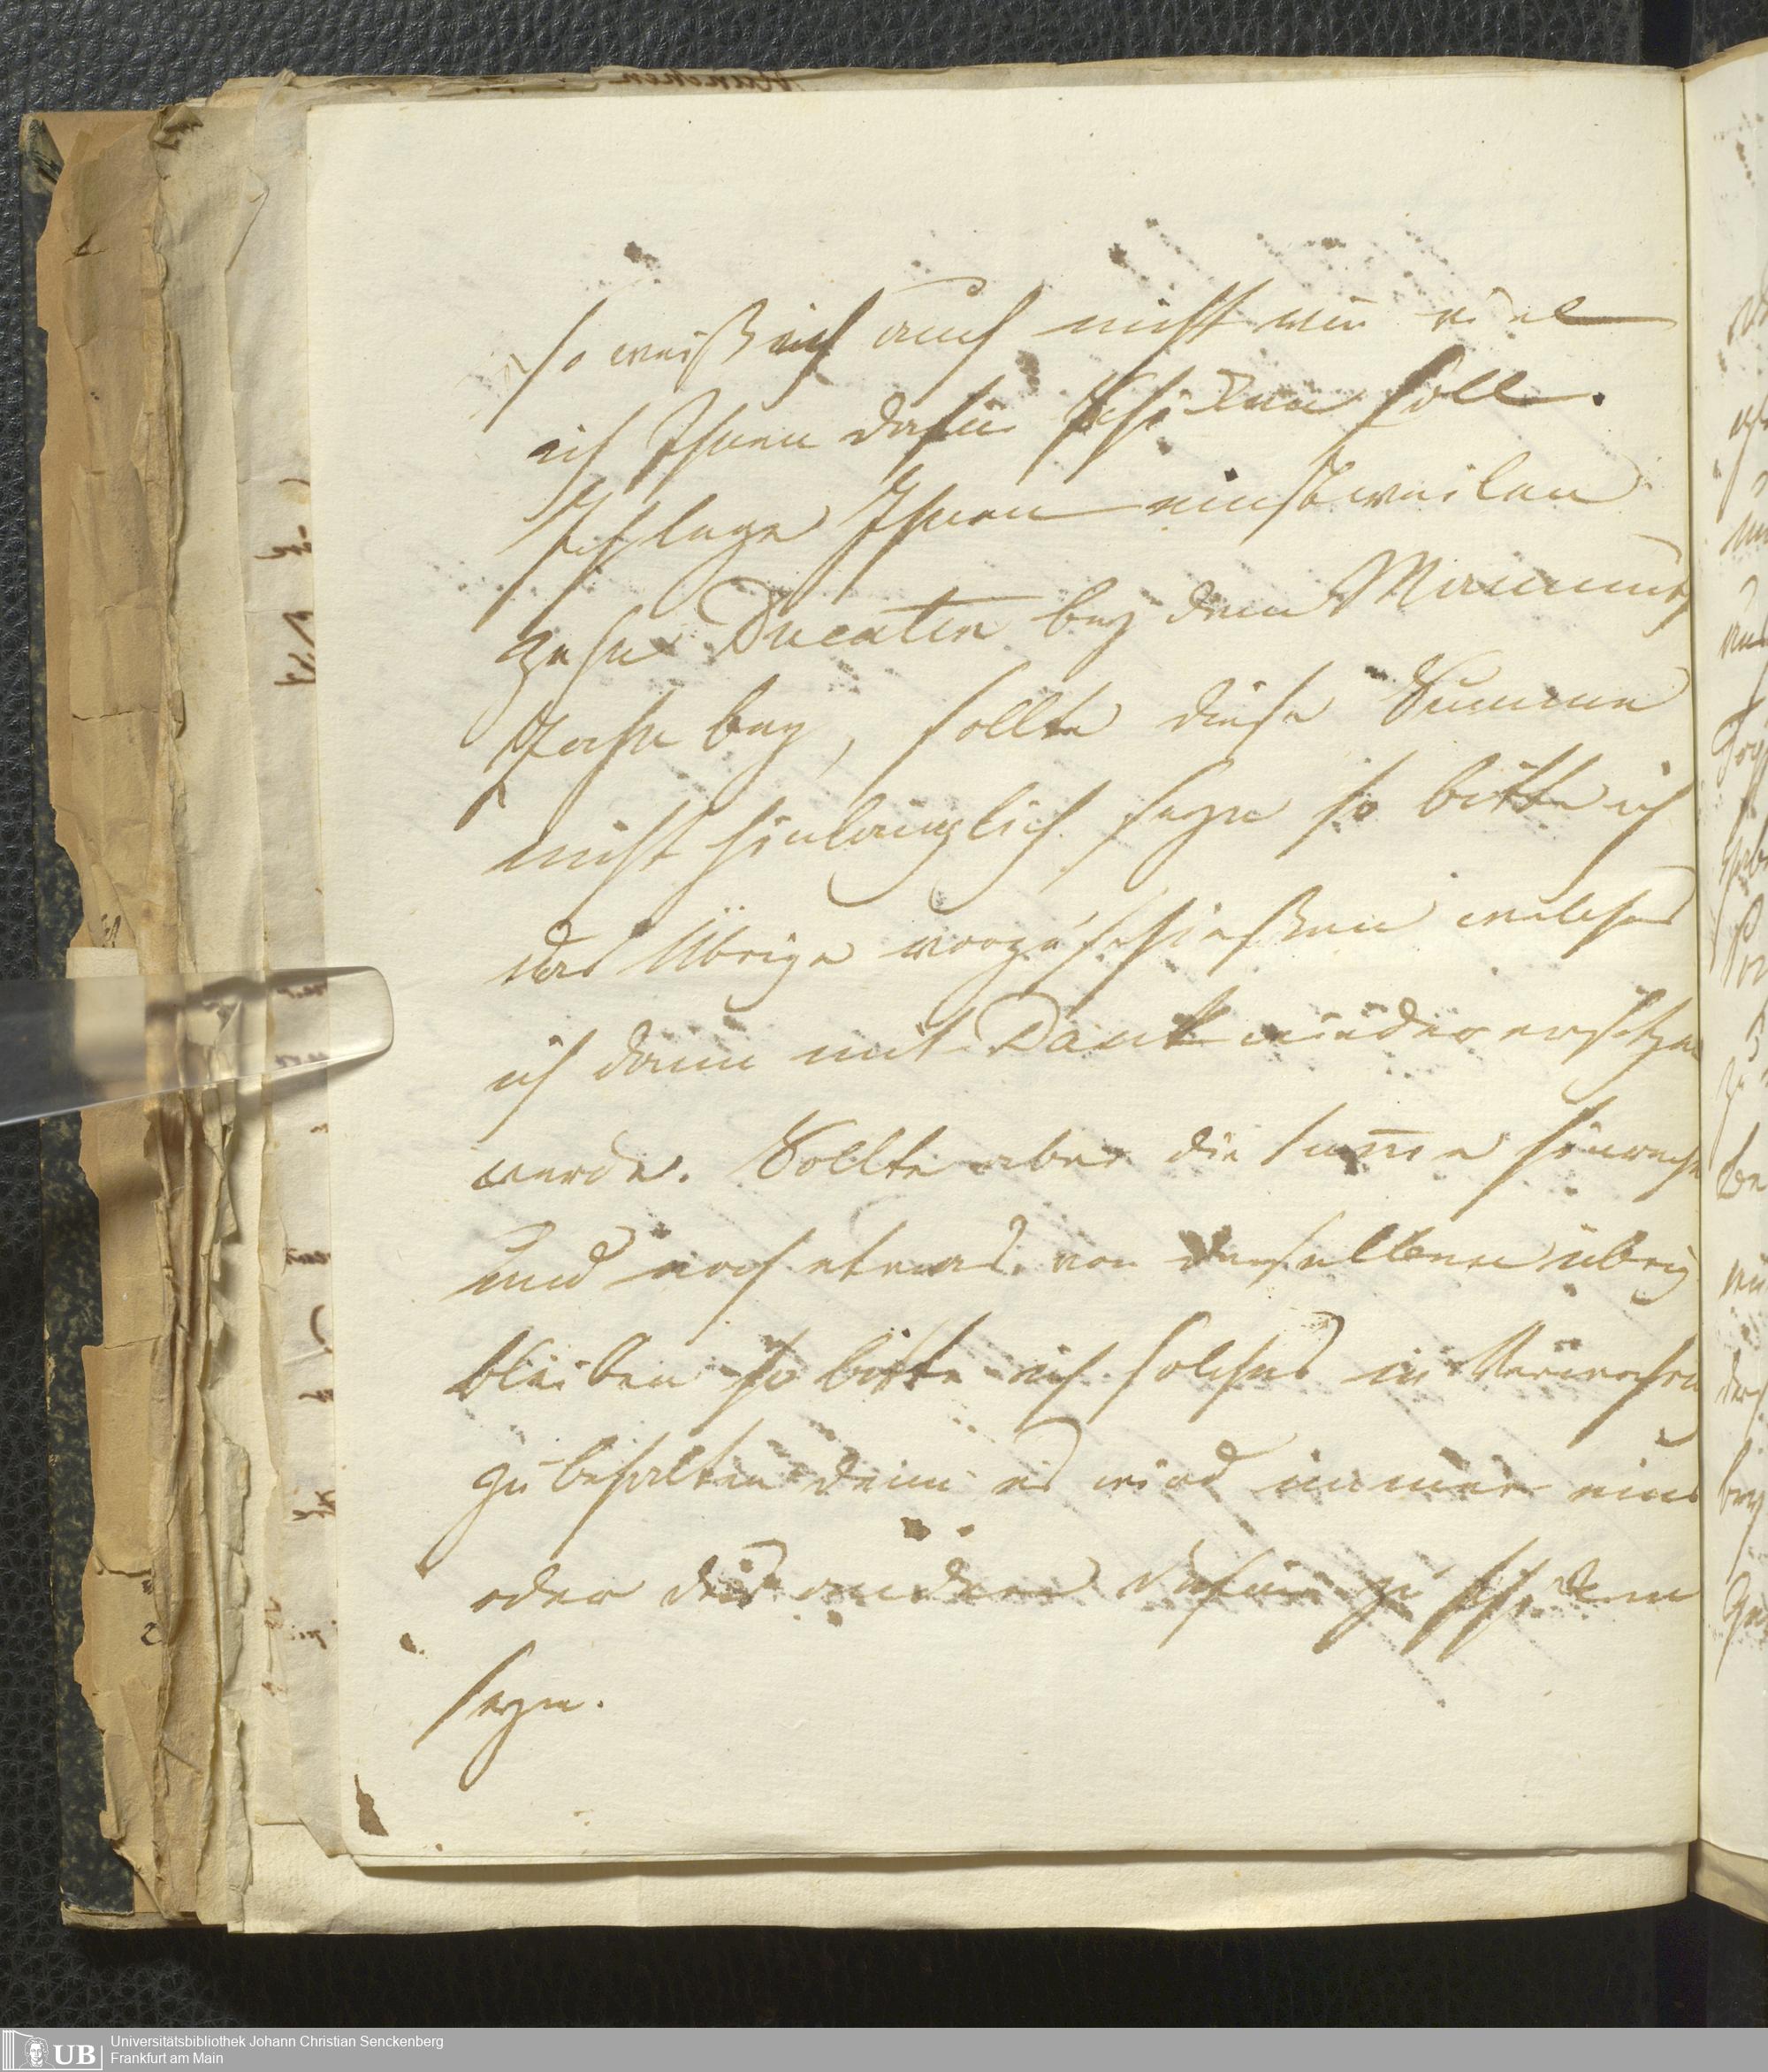 so weiß ich auch nicht wie viel
ich Ihnen dafür schicken soll.
Ich lege Ihnen einstweilen
zehn Ducaten bey dem
bey, sollte diese Summe
nicht hinlänglich seyn so bitte ich
das Übrige vorzuschießen welches
ich dann mit Dank wieder ersetzen
werde. Sollte aber die Summe
und noch etwas von derselben übrig
bleiben so bitte ich solches in
zu behalten denn es wird immer eins
oder das andere dafür zu schicken
seyn.
Universitätsbibliothek Johann Christian Senckenberg
Frankfurt am Main
UB